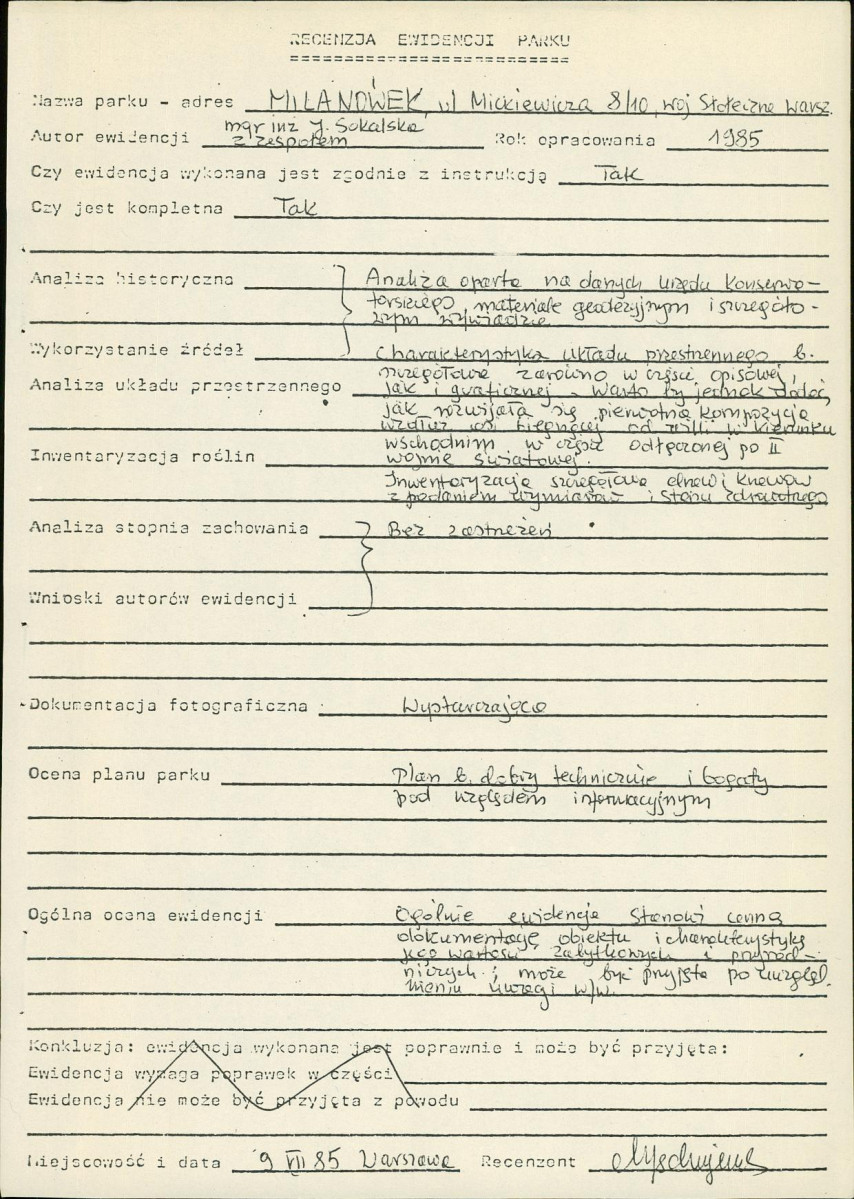 RECENZJA EWIDENCJI PARKU
Nazwa parku - adres MILANÓWEK, ul Mickiewicza 8/10, woj Stołeczne Warsz.
Autor ewidencji mgr inż J. Sokalska z zespołem Rok opracowania 1985
Czy ewidencja wykonana jest zgodnie z instrukcją Tak
Czy jest kompletna Tak
Analiza historyczna Analiza oparta na danych Urzędu Konserwa-
torskiego, materiale geodezyjnym i szczegóło-
wym wywiadzie
Wykorzystanie źródeł Charakterystyka układu przestrzennego b.
szczegółowa zarówno w części opisowej,
Analiza układu przestrzennego jak i graficznej. Warto by jednak dodać,
jak rozwijała się pierwotna kompozycja
wzdłuż osi biegnącej od willi w kierunku
wschodnim w części odłączonej po II
Inwentaryzacja roślin wojnie światowej.
Inwentaryzacja szczegółowa drzew i krzewów
z podaniem wymiarów i stanu zdrowotnego
Analiza stopnia zachowania Bez zastrzeżeń
Wnioski autorów ewidencji
Dokumentacja fotograficzna Wystarczająca
Ocena planu parku Plan b. dobry technicznie i bogaty
pod względem informacyjnym
Ogólna ocena ewidencji Ogólnie ewidencja stanowi cenną
dokumentację obiektu i charakterystykę
jego wartości zabytkowych i przyrod-
niczych; może być przyjęta po uwzględ.
nieniu uwagi w/w.
Konkluzja: ewidencja wykonana jest poprawnie i może być przyjęta:
Ewidencja wymaga poprawek w części
Ewidencja nie może być przyjęta z powodu
Miejscowość i data 9 VII 85 Warszawa Recenzent